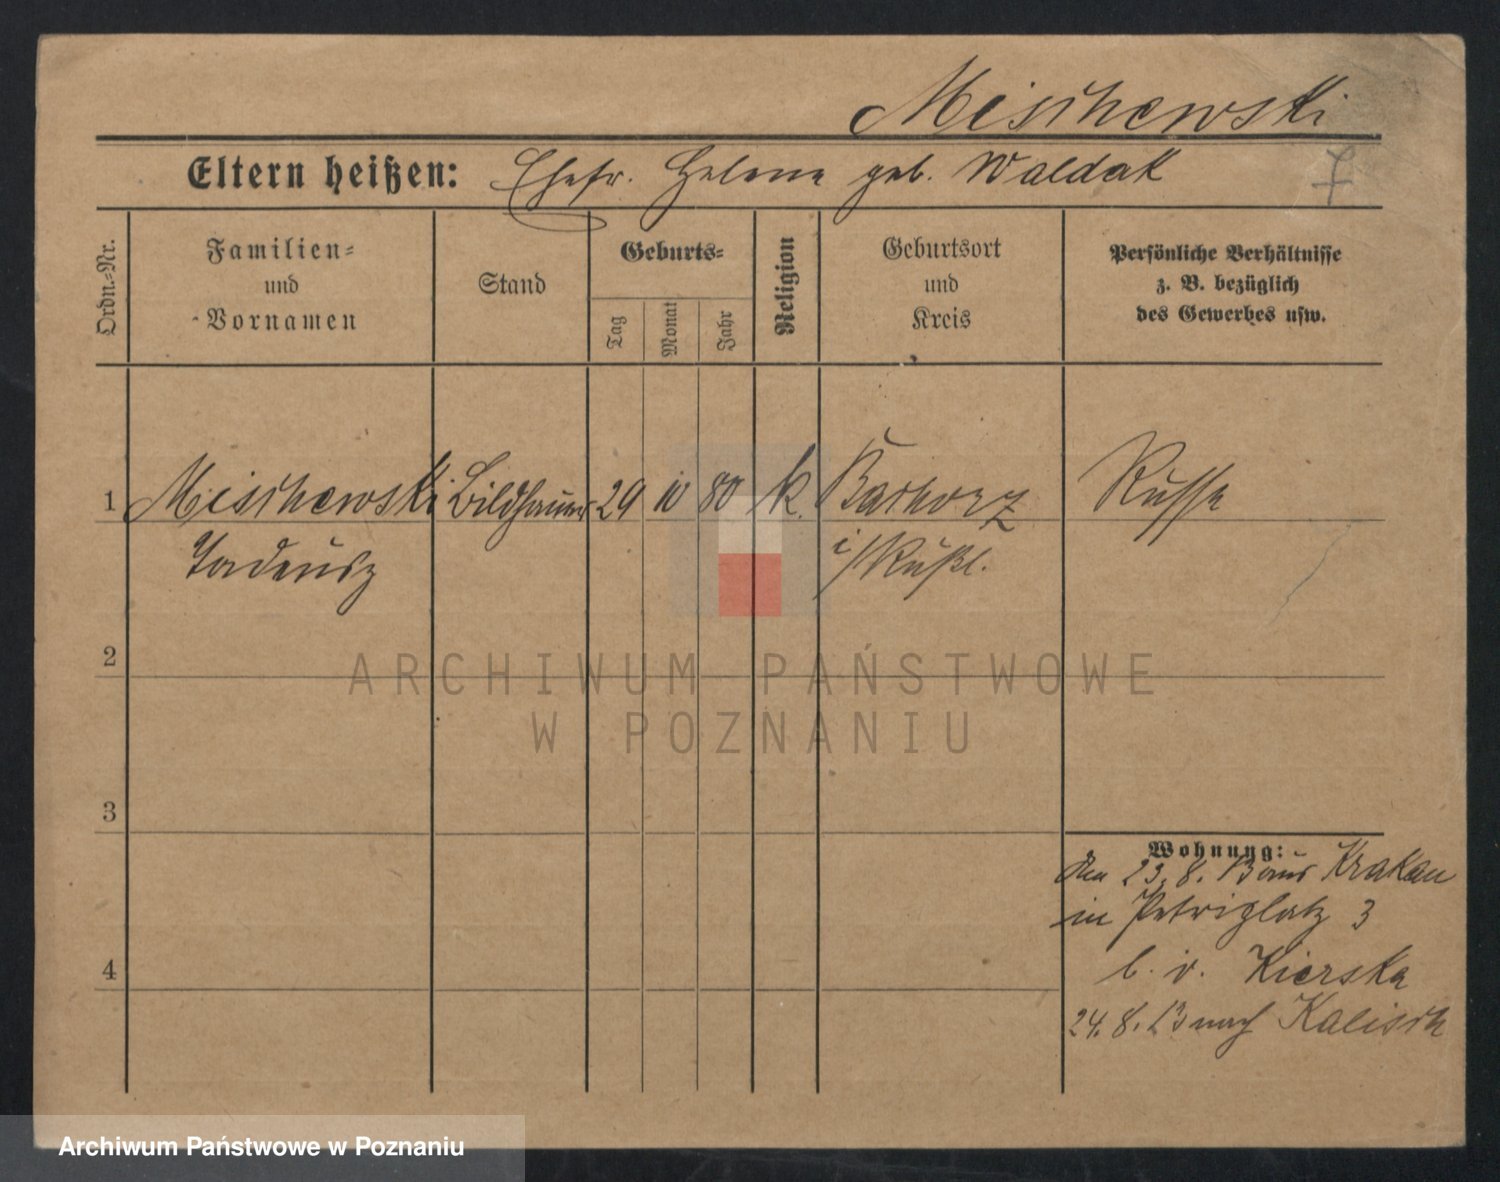 Mischewski
Eltern heißen: Ehefr. Helene geb. Waldak
7
Ordn.-Nr.
Familien-
und
Vornamen
Stand
Geburts-
Tag
Monat
Jahr
Religion
Geburtsort
und
Kreis
Persönliche Verhältnisse
z. B. bezüglich
des Gewerbes usw.
1 Mischewski Bildhauer 29 10 80 k. Russe
Tadeusz i/Rußl.
2
ARCHIWUM PAŃSTWOWE
W POZNANIU
3
Wohnung:
den 23. 8. 13 aus Krakau
in Petriplatz 3
b. v. Kierska
4
24. 8. 13 nach Kalisch
Archiwum Państwowe w Poznaniu